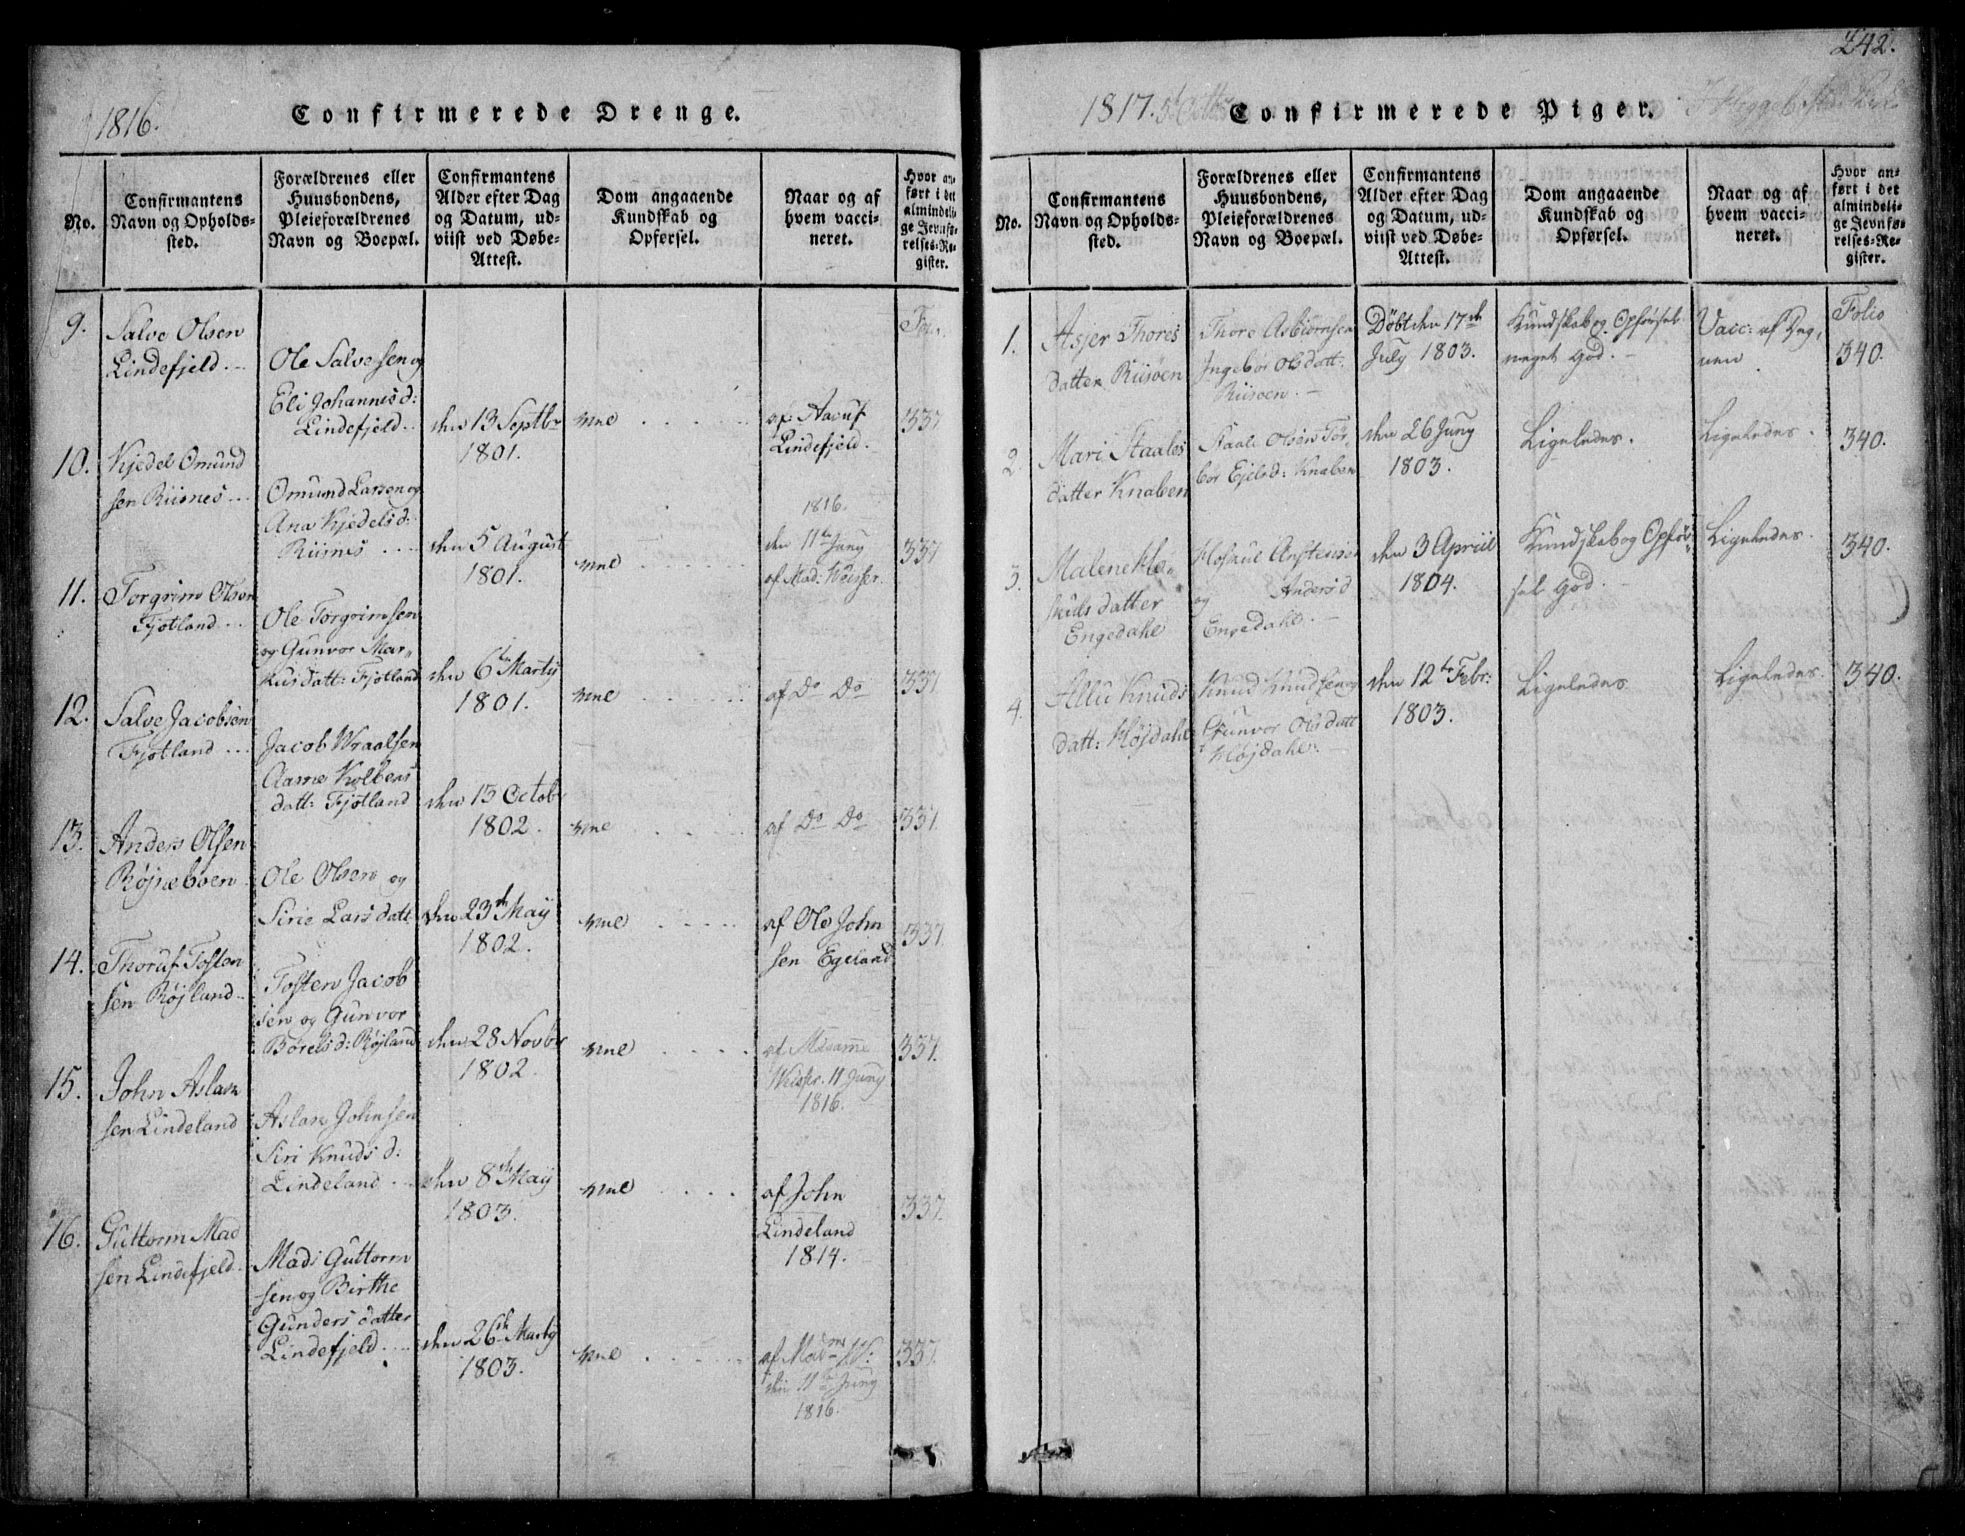 242.
1816.
Confirmerede Drenge.
No.
Confirmantens
Navn og Opholds-
sted.
Forældrenes eller
Huusbondens,
Pleieforældrenes
Navn og Boepæl.
Confirmantens
Alder efter Dag
og Datum, ud-
viist ved Døbe-
Attest.
Dom angaaende
Kundskab og
Opførsel.
Naar og af
hvem vacci-
neret.
Hvor an-
ført i det
almindeli-
ge Jevnfø-
relses-Re-
gister.
9.
Salve Olsen
Lindefjeld.
Ole Salvesen og
Eli Johannisd:
Lindefjeld
den 13 Septbr
1801.
af Aaruf
Lindefjeld.
337
10.
Kjedel Omund
sen Riisnes
Omund Larsen og
Ana Kjedelsd:
Riisnes
den 5 August
1801.
1816.
den 11te Juny
af Mad: Weisser.
337
11.
Torgrim Olsen
Fjotland
Ole Torgrimsen
og Gunvor Mar„
kusdatt: Fjotland
den 6te Marty
1801.
af Do Do
337
12.
Salve Jacobsen
Fjotland
Jacob Wraalsen
Aasne Kolbens
datt: Fjotland
den 13 Octobr
1802.
af Do Do
337.
13.
Anders Olsen
Røjsæboen
Ole Olsen og
Sirie Larsdatt
den 23de May
1802.
af Ole John
sen Egeland
337.
14.
Thoruf Tosten
sen Røjland
Tosten Jacob
sen og Gunvor
Børelsd: Røjland
den 28 Novbr
1802.
af Madame
Weisser. 11 Juny
1816.
337.
15.
John Aslak
sen Lindeland
Aslak Johnsen
Siri Knudsd:
Lindeland
den 8de May
1803.
af John
Lindeland
1814.
337.
16.
Guttorm Mad
sen Lindefjeld
Mads Guttorm
sen og Birthe
Gundersdatter
Lindefjeld
den 26de Marty
1803.
af Madme W:
den 11te Juny
1816.
337.
1817.
Confirmerede Piger.
No.
Confirmantens
Navn og Opholds-
sted.
Forældrenes eller
Huusbondens,
Pleieforældrenes
Navn og Boepæl.
Confirmantens
Alder efter Dag
og Datum, ud-
viist ved Døbe-
Attest.
Dom angaaende
Kundskab og
Opførsel.
Naar og af
hvem vacci-
neret.
Hvor an-
ført i det
almindeli-
ge Jevnfø-
relses-Re-
gister.
1.
Asjer Thores
datter Riisøen
Thore Asbiørnsen
Ingebør Olsdatt:
Riisøen.
Døbt den 17de
July 1803.
Kundskab og Opførsel
meget god.
Vacc: af
Folio
340.
2
Mari Staales
datter Knaben
Staale Olsen Tor
bør Ejelsd: Knaben
den 26 Juny
1803.
Ligeledes.
Ligeledes.
340.
3.
Malene Flo„
skuls datter
Engedahl
og Andersd
Engedahl.
den 3 Apriil
1804.
Kundskab og Opfør„
sel god.
Ligeledes.
340.
4.
Knuds
datt: Højdahl
Knud Knudsen og
Gunvor Olsdatt
den 12te Febr:
1803.
Ligeledes
Ligeledes.
340.